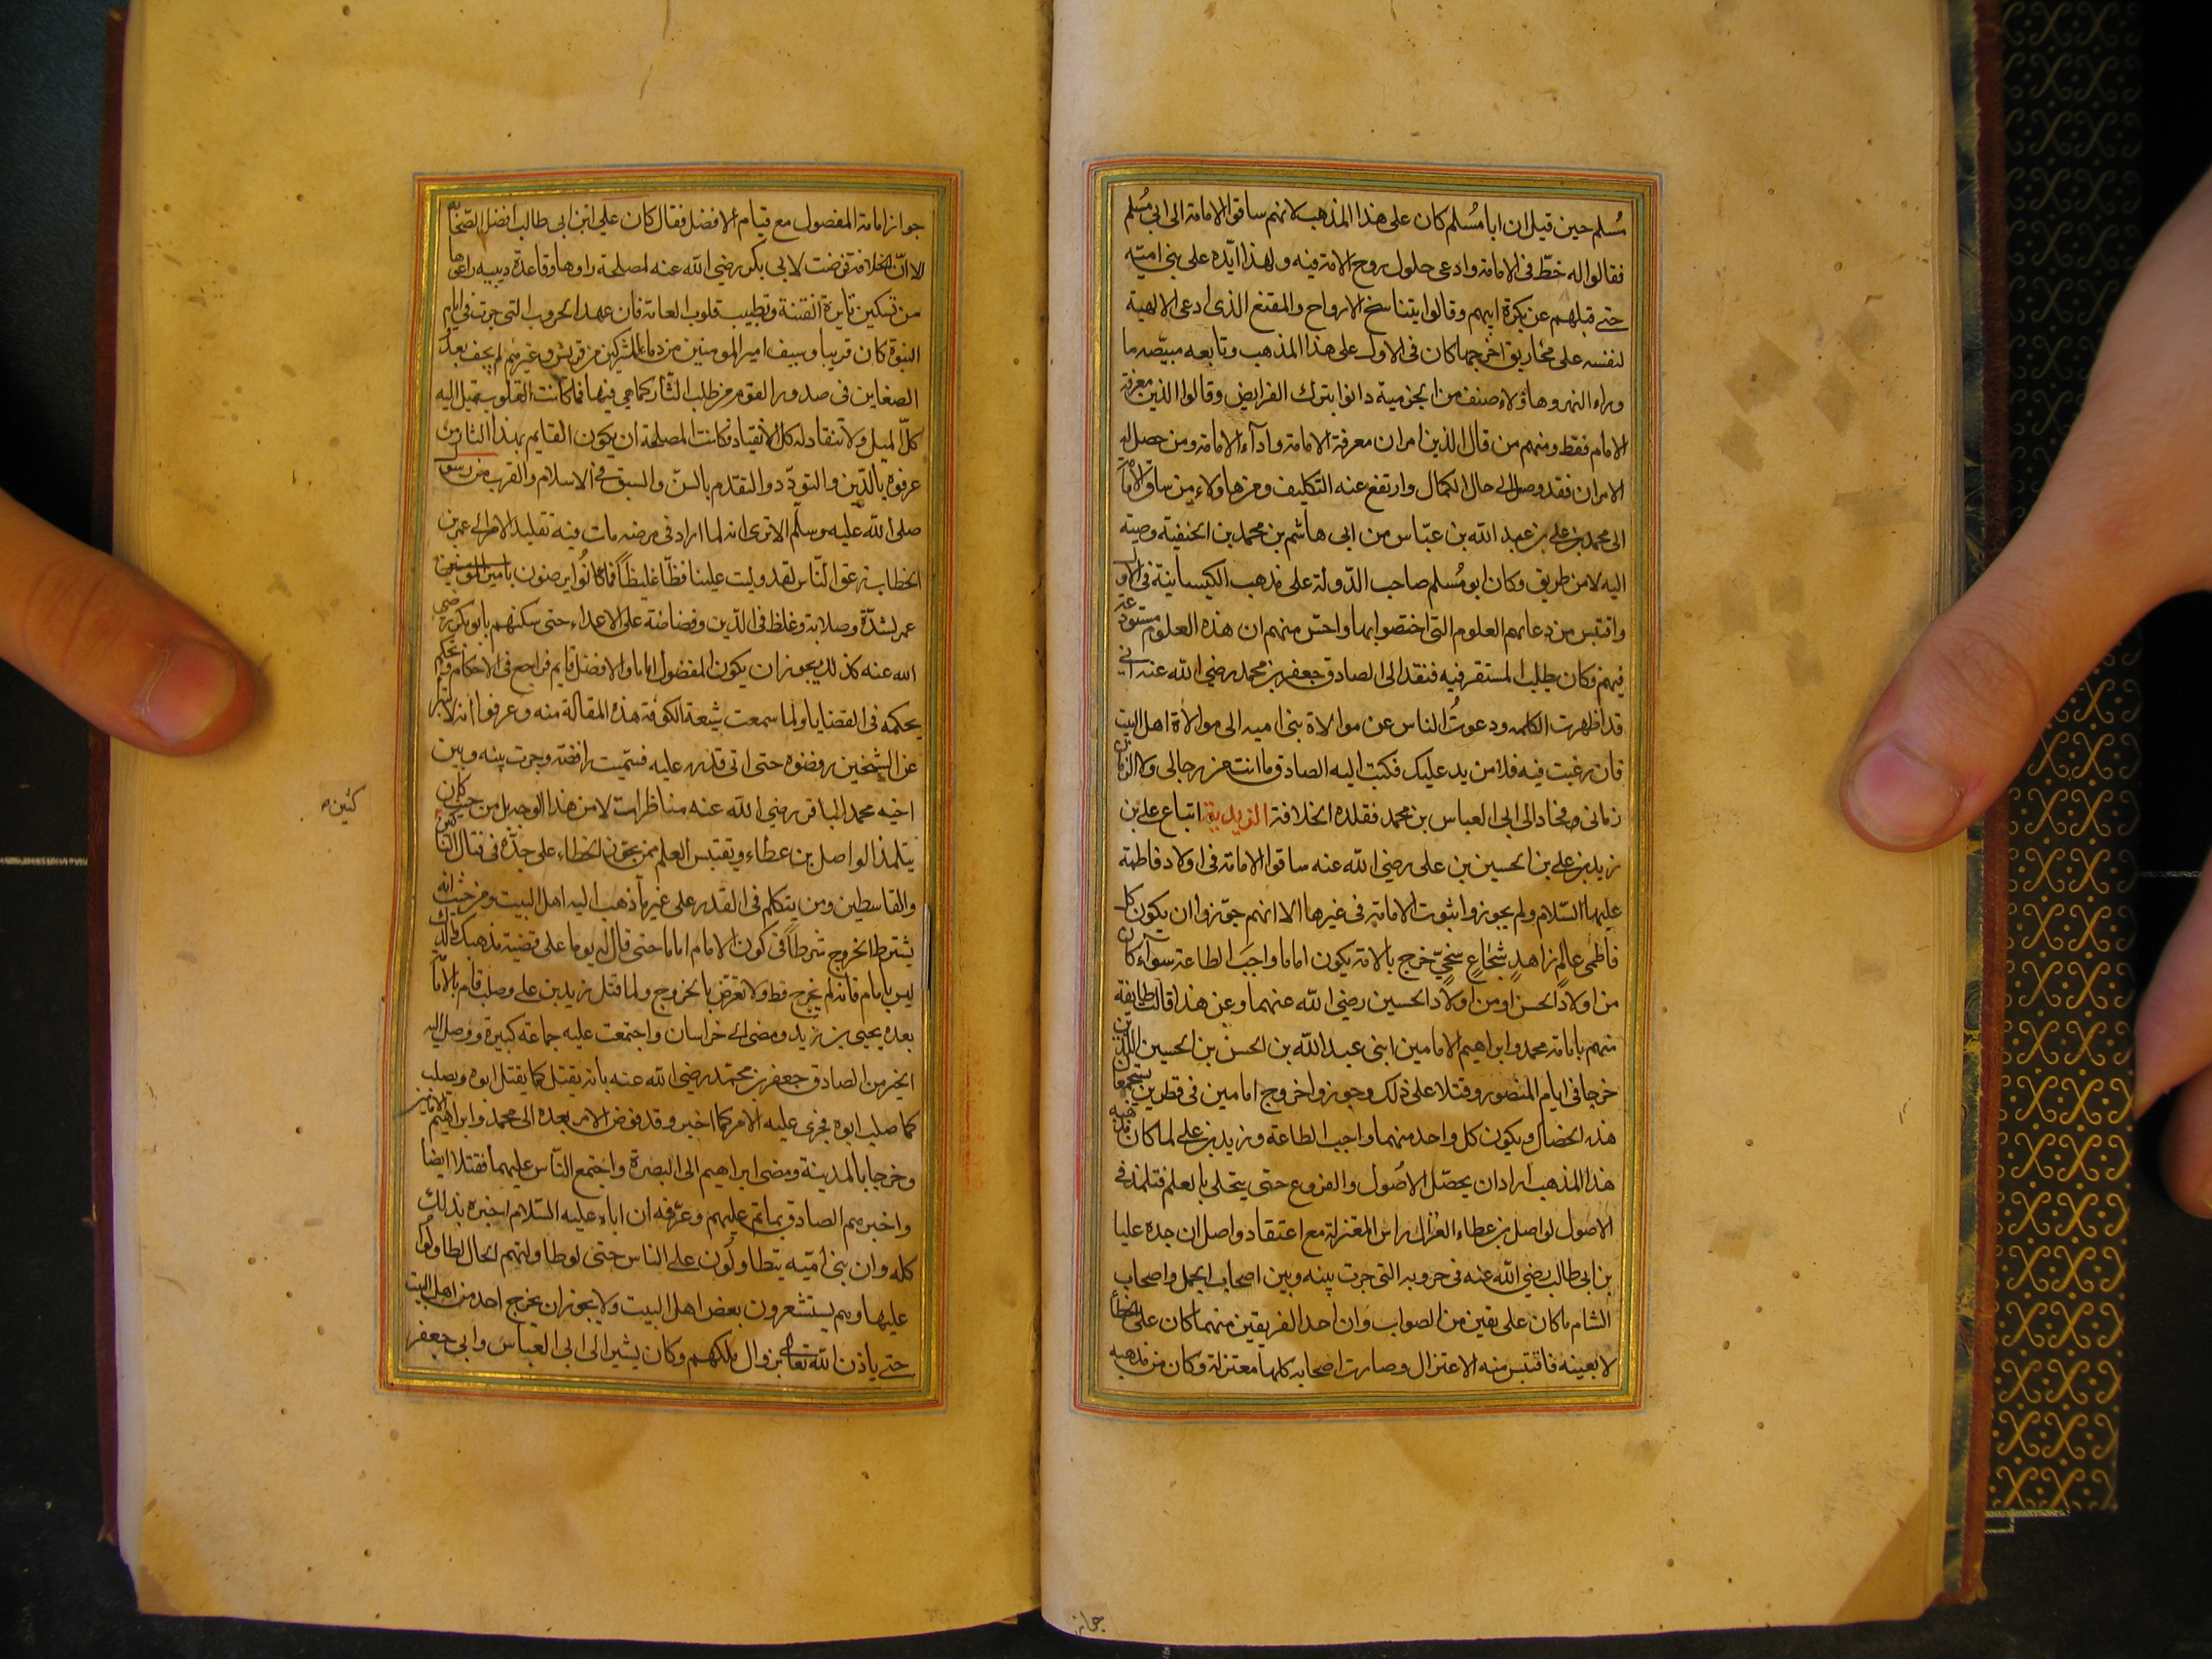 مُسلم حين قيل ان ابا مُسلم كان على هذا المذهب لانهم ساقوا الامامة الى ابى مُسلم
فقالوا له خطّ فى الامامة وادعى حلول روح الامة فيه ولهذا ايّده على بنى اميّه
حتى قتلهم عن بكرة ابيهم وقالوا بتناسخ الارواح والمقنع الذى ادعى الالهية
لنفسه على مخاريق اخرجها كان فى الاول على هذا المذهب وتابعه مبيّضه ما
وراء النهر وهاؤلاء صنف من الخرمية دانوا بترك الفرايض وقالوا الدين معرفة
الامام فقط ومنهم من قال الدين امران معرفة الامامة واداء الامامة ومن حصل له
الامران فقد وصل الى حال الكمال وارتفع عنه التكليف ومن هاولاء من ساق الامامة
الى محمد بن على بن عبد الله بن عبّاس من ابى هاشم بن محمد بن الحنفية وصية
اليه لا من طريق وكان ابو مُسلم صاحب الدّولة على مذهب الكيسانية فى الاول
واقتبس من دعاتهم العلوم التى اختصوا بها واحسّ منهم ان هذه العلوم مستودعة
فيهم فكان يطلب المستقر فيه فنفد الى الصادق جعفر بن محمد رضي الله عنه انى
قد اظهرت الكلمه ودعوتُ الناس عن موالاة بنى اميه الى موالاة اهل البيت
فان رغبت فيه فلا مزيد عليك فكتب اليه الصادق ما انت من رجالى ولا الزمان
زمانى فحاد الى ابى العباس بن محمد فقلده الخلافة الزيدية اتباع على بن
زيد بن على بن الحسين بن على رضي الله عنه ساقوا الامامة فى اولاد فاطمة
عليها السّلام ولم يجوزوا ثبوت الامامة فى غيرها الا انهم جوّزوا ان يكون كل
فاطمى عالمٍ زاهدٍ شجاعٍ سخيّ خرج بالامة يكون اماما واجبَ الطاعة سوآء كان
من اولاد الحسن او من اولاد الحسين رضي الله عنهما وعن هذا قالت طايفة
منهم بامامة محمد وابراهيم الامامين ابنى عبد الله بن الحسن بن الحسين اللذين
خرجا فى ايام المنصور وقتلا على ذلك وجوزوا خروج امامين فى قطرين يستجمعا
هذه الخصال ويكون كل واحد منهما واجب الطاعة وزيد بن على لما كان مذهبه
هذا المذهب اراد ان يحصّل الاصُول والفروع حتى يتحلى بالعلم فتلمذ فى
الاصول لواصل بن عطاء الغزال راس المعتزلة مع اعتقاد واصل ان جده عليا
بن ابى طالب رضي الله عنه فى حروبه التى جرت بينه وبين اصحاب الجمل واصحاب
الشام ما كان على يقين من الصواب وان احد الفريقين منهما كان على الخطأ
لا بعينه فاقتبس منه الاعتزال وصارت اصحابه كلها معتزلة وكان من مذهبه
جواز
جواز امامة المفضول مع قيام الافضل فقال كان على ابن ابى طالب افضل الصّحابة
الا انّ الخلافة فوضت لابى بكر رضي الله عنه لمصلحة راوها وقاعدة دينيه راعوها
من تسكين نايرة الفتنة وتطييب قلوب العامة فان عهد الحروب التى جرت فى ايام
النبوة كان قريبا وسيف امير المومنين من دماء المشركين من قريش وغيرهم لم يجف بعد
الضغاين فى صدور القوم من طلب الثّار كما هى فيها فما كانت القلوب تميل اليه
كلّ الميل ولا تنقاد له كل الانقياد فكانت المصلحة ان يكون القايم بهذا الشان من
عرفوه بالدّين والتودّد والتقدم بالسنّ والسبق فى الاسلام والقرب من رسول
صلى الله عليه وسلم الا ترى انه لما اراد فى مرضه مات فيه تقليد الامر الى عمر بن
الخطاب زعق النّاس لقد وليت علينا فظّا غليظاً فما كانُوا يرضون بامير المومنين
عمر لشدّة وصلابة وغلظ فى الدّين وفضاضة على الاعداء حتى سكنهم بابو بكر رضى
الله عنه كذلك يجوز ان يكون المفضول اماما والافضل قايم فيراجع فى الاحكام ويحكم
بحكمه فى القضايا ولما سمعت شيعة الكوفة هذه المقالة منه وعرفوا انه لا يتبرأ
عن الشيخين رفضوه حتى اتى قدره عليه فسميت رافضة وجرت بينه وبين
اخيه محمد الباقر رضي الله عنه مناظرات لا من هذا الوجه بل من حيث كان
يتلمذ لواصل بن عطاء ويقتبس العلم ممن يجوز الخطاء على جدّه فى قتال الناكثين
كثين
والقاسطين ومن يتكلم فى القدر على غير ما ذهب اليه اهل البيت ومن حيث انه
يشترط الخروج شرطاً فى كون الامام اماما حتى قال له يوما على قضية مذهبك والدك
ليس بامام فانه لم يخرج قط ولا تعرّض بالخروج ولما قتل زيد بن على وصلب قام بالامامة
بعده يحيى بن زيد ومضى الى خراسان واجتمعت عليه جماعة كبيرة ووصل اليه
الخبر من الصادق جعفر بن محمد رضي الله عنه بانه يقتل كما يقتل ابوه ويصلب
كما صلب ابوه فجرى عليه الامر كما اخبر وقد فوض الامر بعده الى محمد وابراهيم الامامين
وخرجا بالمدينة ومضى ابراهيم الى البصرة واجتمع النّاس عليهما فقتلا ايضا
واخبرهم الصادق بما تم عليهم وعرّفه ان اباه عليه السّلام اخبره بذلك
كله وان بنى اميّه يتطاولون على الناس حتى لو طاولتهم الجبال لطاولوا
عليها وهم يستشعرون بعض اهل البيت ولا يجوز ان يخرج احد من اهل البيت
حتى يأذن الله تعالى بزوال ملكهم وكان يشير الى ابى العباس وابى جعفر